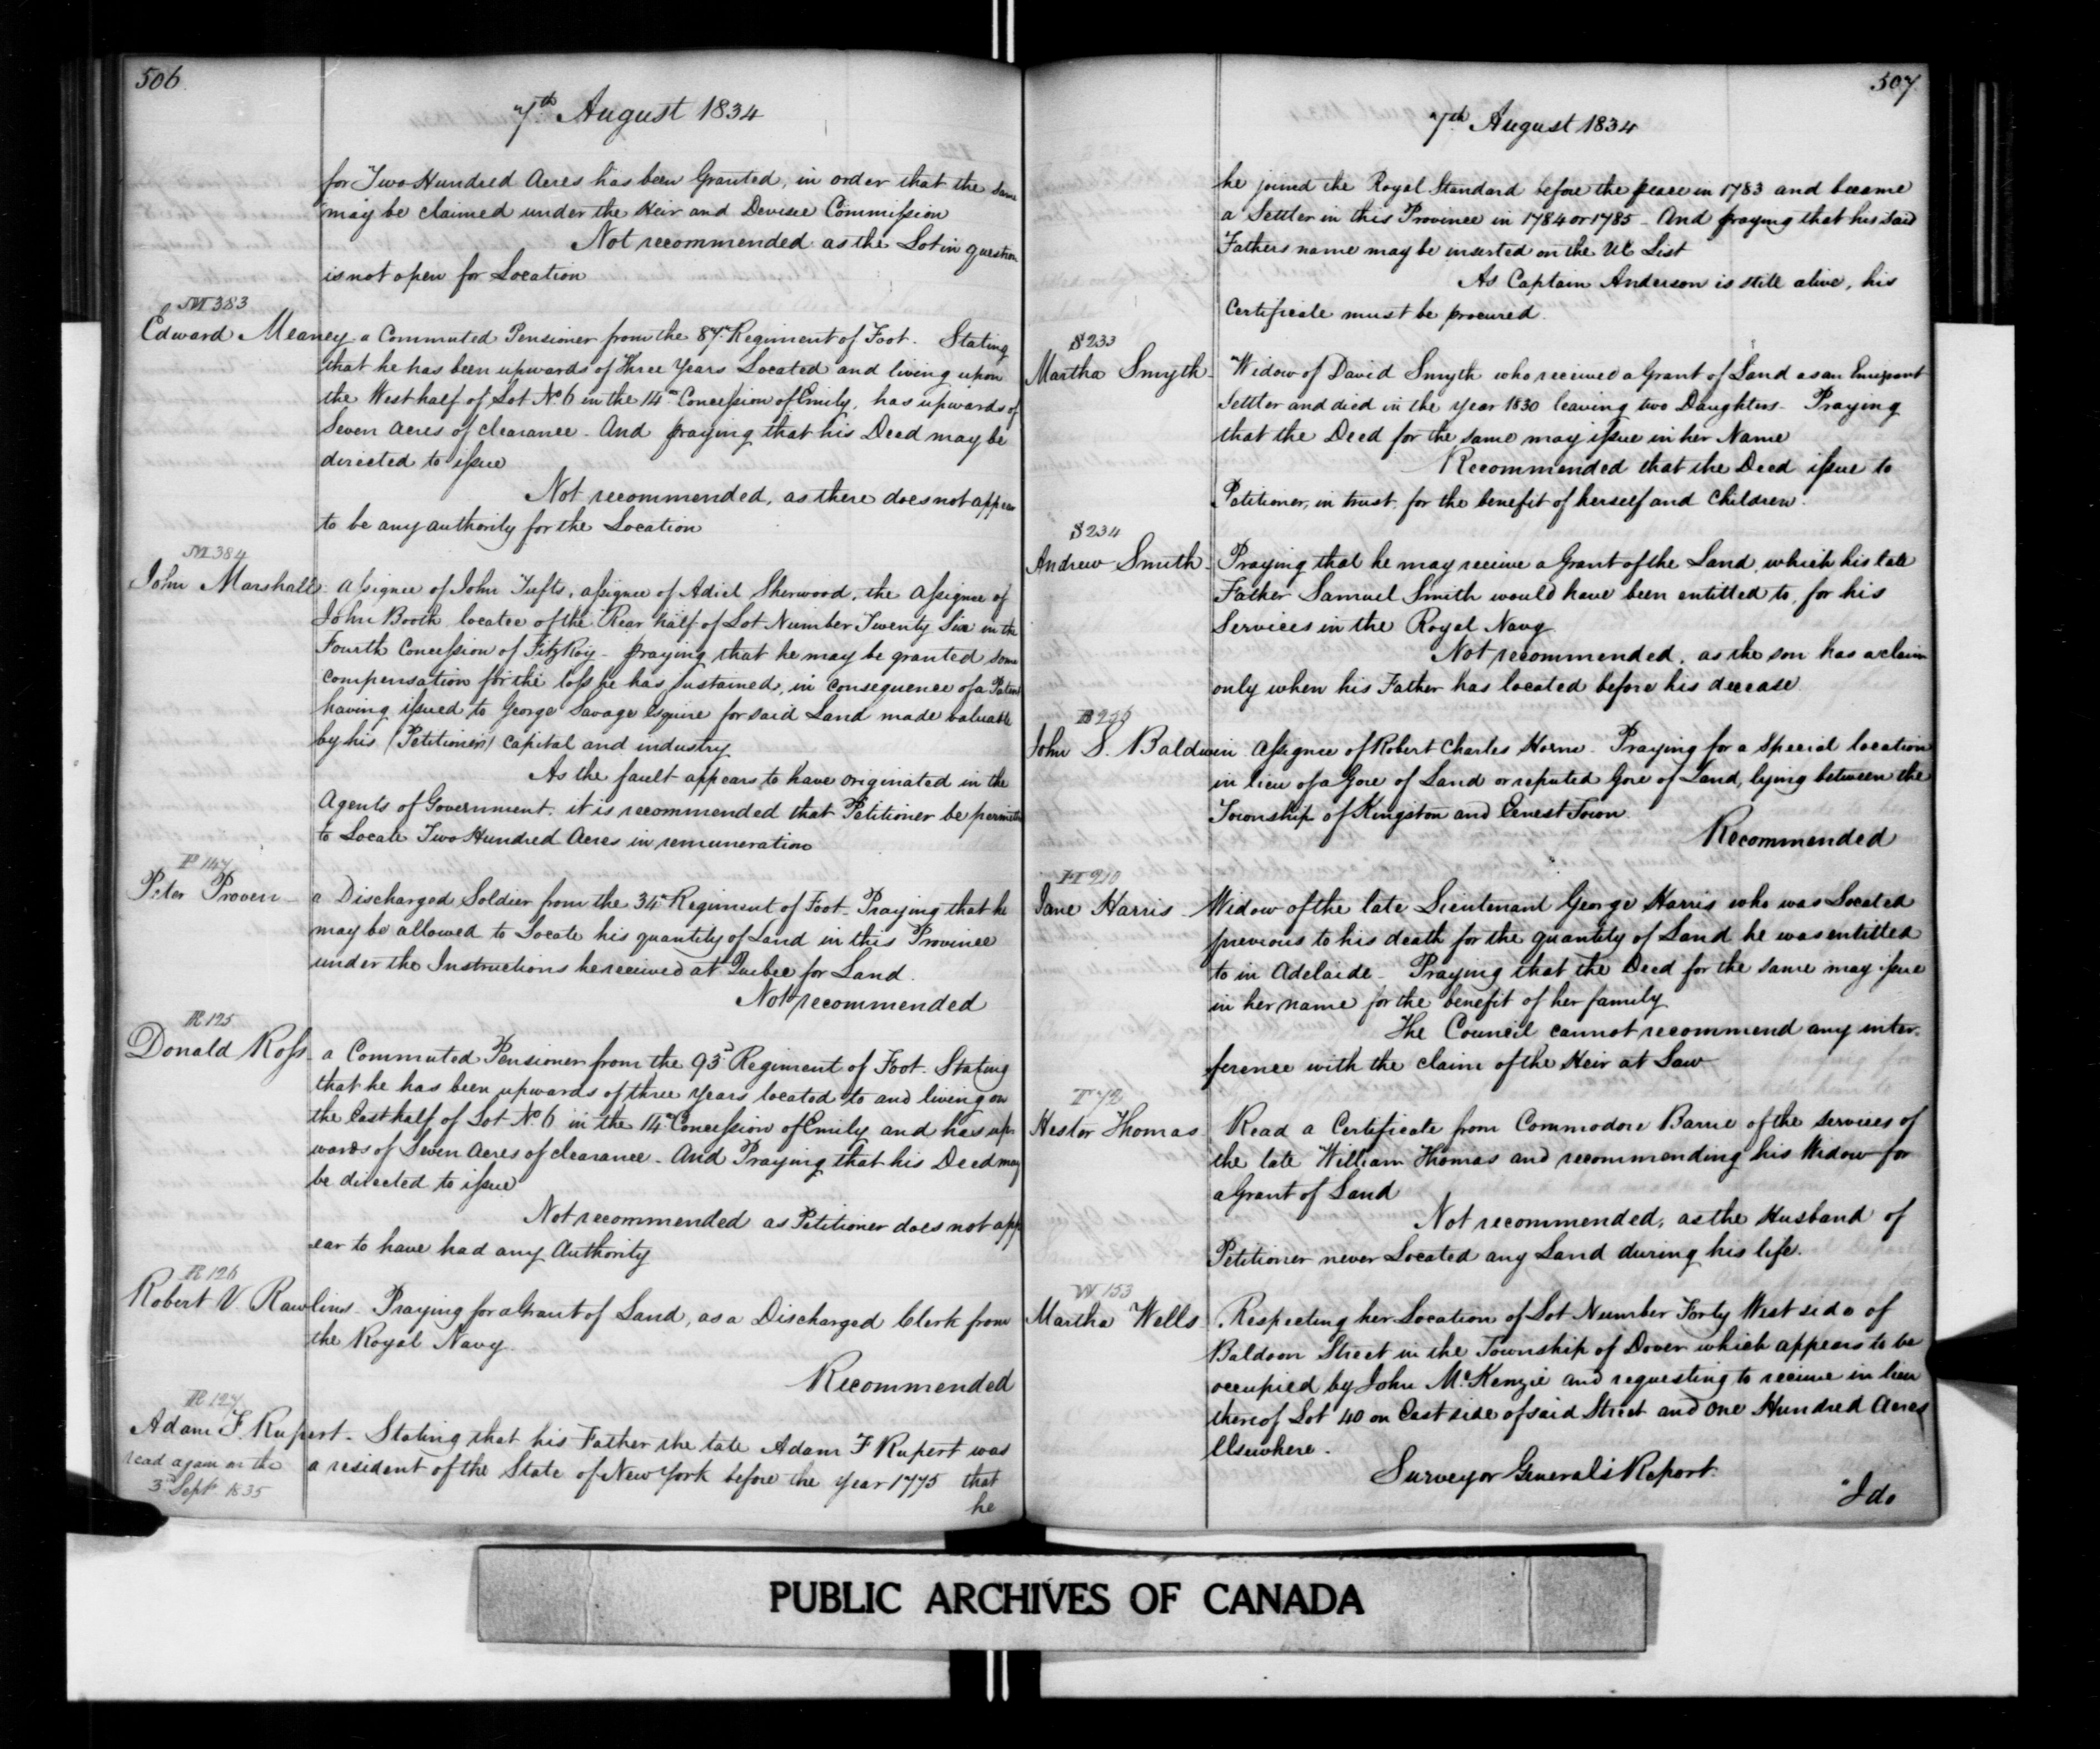 506.
7th August 1834
for Two Hundred Acres has been Granted, in order that the same
may be claimed under the Heir and Devisee Commission
Not recommended as the Lot in question
is not open for Location
M 383
Edward Meaney - a Commuted Pensioner from the 87th Regiment of Foot. Stating
that he has been upwards of Three Years Located and living upon
the West half of Lot No. 6 in the 14th Concession of Emily, has upwards of
Seven Acres of clearance - And praying that his Deed may be
directed to issue
Not recommended, as there does not appear
to be any authority for the Location
M 384
John Marshall - Assignee of John Tufts, assignee of Adiel Sherwood, the Assignee of
John Booth locatee of the Rear half of Lot Number Twenty Six in the
Fourth Concession of FitzRoy - praying that he may be granted some
compensation for the loss he has sustained, in consequence of a Patent
having issued to George Savage Esquire for said Land made valuable
by his (Petitioners) Capital and industry
As the fault appears to have originated in the
Agents of Government. it is recommended that Petitioner be permitted
to Locate Two Hundred Acres in remuneration
P 147
Peter Proven - a Discharged Soldier from the 34th Regiment of Foot - Praying that he
may be allowed to Locate his quantity of Land in this Province
under the Instructions he received at Quebec for Land.
Not recommended
R 125
Donald Ross - a Commuted Pensioner from the 93d Regiment of Foot - Stating
that he has been upwards of three Years located to and living on
the East half of Lot No. 6 in the 14th Concession of Emily and has up-
wards of Seven Acres of clearance - And Praying that his Deed may
be directed to issue
Not recommended as Petitioner does not app
ear to have had any Authority
R 126
Robert V. Rawlins - Praying for a Grant of Land, as a Discharged Clerk from
the Royal Navy.
Recommended
R 127
Adam F. Rupert - Stating that his Father the late Adam F Rupert was
read again on the a resident of the State of New York before the Year 1775 that
3d Sept 1835
he
507
7th August 1834
he joined the Royal Standard before the peace in 1783 and became
a Settler in this Province in 1784 or 1785 - And praying that his said
Fathers name may be inserted on the UE List
As Captain Anderson is still alive, his
Certificate must be procured.
S 233
Martha Smyth - Widow of David Smyth who received a Grant of Land as an Emigrant
Settler and died in the Year 1830 leaving two Daughters - Praying
that the Deed for the same may issue in her Name
Recommended that the Deed issue to
Petitioner, in trust, for the benefit of herself and Children.
S 234
Andrew Smith - Praying that he may receive a Grant of the Land, which his late
Father Samuel Smith would have been entitled to, for his
Services in the Royal Navy
Not recommended, as the son has a claim
only when his Father has located before his decease
John S. Baldwin Assignee of Robert Charles Horne - Praying for a Special location
in lieu of a Gore of Land or reputed Gore of Land, lying between the
Township of Kingston and Ernest Town
Recommended
H 210
Jane Harris - Widow of the late Lieutenant George Harris who was Located
previous to his death for the quantity of Land he was entitled
to in Adelaide - Praying that the Deed for the same may issue
in her name for the benefit of her family
The Council cannot recommend any inter-
ference with the claim of the Heir at Law
T 72
Hester Thomas Read a Certificate from Commodore Barrie of the services of
the late William Thomas and recommending his Widow for
a Grant of Land
Not recommended, as the Husband of
Petitioner never Located any Land during his life.
W 153
Martha Wells Respecting her Location of Lot Number Forty West side of
Baldoon Street in the Township of Dover which appears to be
occupied by John McKenzie and requesting to receive in lieu
thereof Lot 40 on East side of said Street and One Hundred Acres
Elsewhere.
Surveyor General's Report.
"I do
PUBLIC ARCHIVES OF CANADA